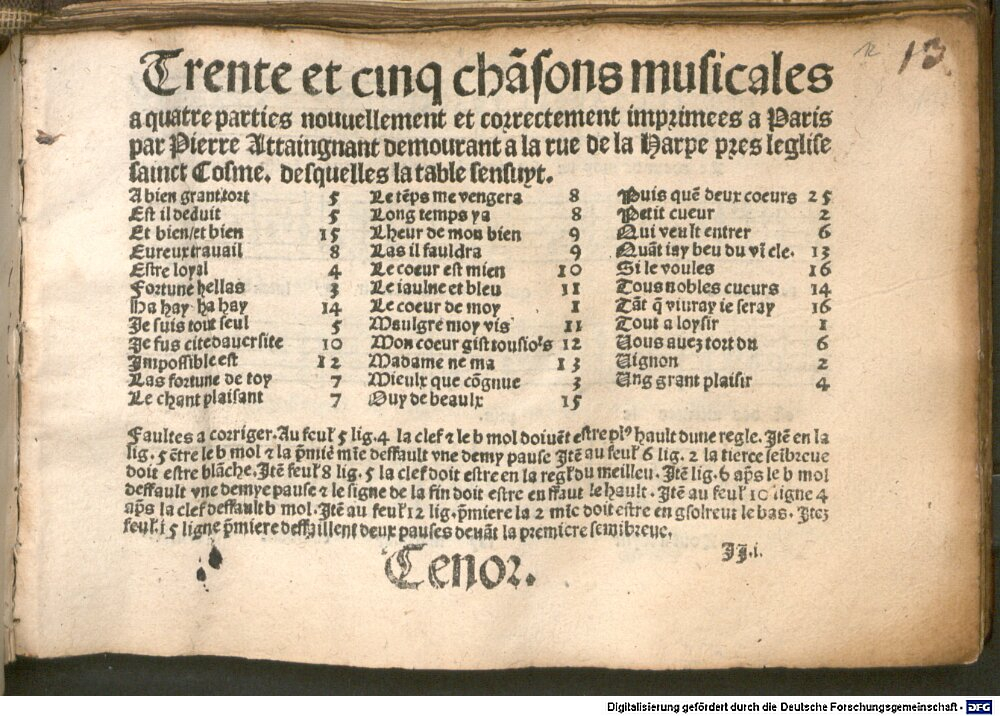 13
Trente et cinq chãsons musicales
a quatre parties nouuellement et correctement imprimees a Paris
par Pierre Attaingnant demourant a la rue de la Harpe pres leglise
sainct Cosme. desquelles la table sensuyt.
A bien grant tort 5
Est il deduit 5
Et bien/et bien 15
Eureux trauail 8
Estre loyal 4
Fortune hellas 3
Ha hay ha hay 14
Je suis tout seul 5
Je fus cite dauersite 10
Impossible est 12
Las fortune de toy 7
Le chant plaisant 7
Le tẽps me vengera 8
Long temps ya 8
Lheur de mon bien 9
Las il fauldra 9
Le coeur est mien 10
Le iaulne et bleu 11
Le coeur de moy 1
Maulgre moy vis 11
Mon coeur gist tousiors 12
Madame ne ma 13
Mieulx que cõgnue 3
Ouy de beaulx 15
Puis quẽ deux coeurs 25
Petit cueur 2
Qui veult entrer 6
Quãt iay beu du vĩ cle. 13
Si le voules 16
Tous nobles cueurs 14
Tãt q̃ viuray ie seray 16
Tout a loysir 1
Uous auez tort du 6
Uignon 2
Ung grant plaisir 4
Faultes a corriger. Au feul' 5 lig. 4 la clef ⁊ le b mol doiuẽt estre pl' hault dune regle. Itẽ en la
lig. 5 ẽtre le b mol ⁊ la p̃mie' mie deffault vne demy pause Itẽ au feul' 6 lig. 2 la tierce seibreue
doit estre blãche. Itẽ feul' 8 lig. 5 la clef doit estre en la regl' du meilleu. Itẽ lig. 6 ap̃s le b mol
deffault vne demye pause ⁊ le signe de la fin doit estre en ffaut le hault. Itẽ au feul' 10 ligne 4
ap̃s la clef deffault b mol. Itẽ au feul' 12 lig. p̃miere la 2 mie doit estre en gsolreut le bas. Itez
feul. 15 ligne p̃miere deffaillent deux pauses deuãt la premiere semibreue.
Tenor.
Digitalisierung gefördert durch die Deutsche Forschungsgemeinschaft - DFG